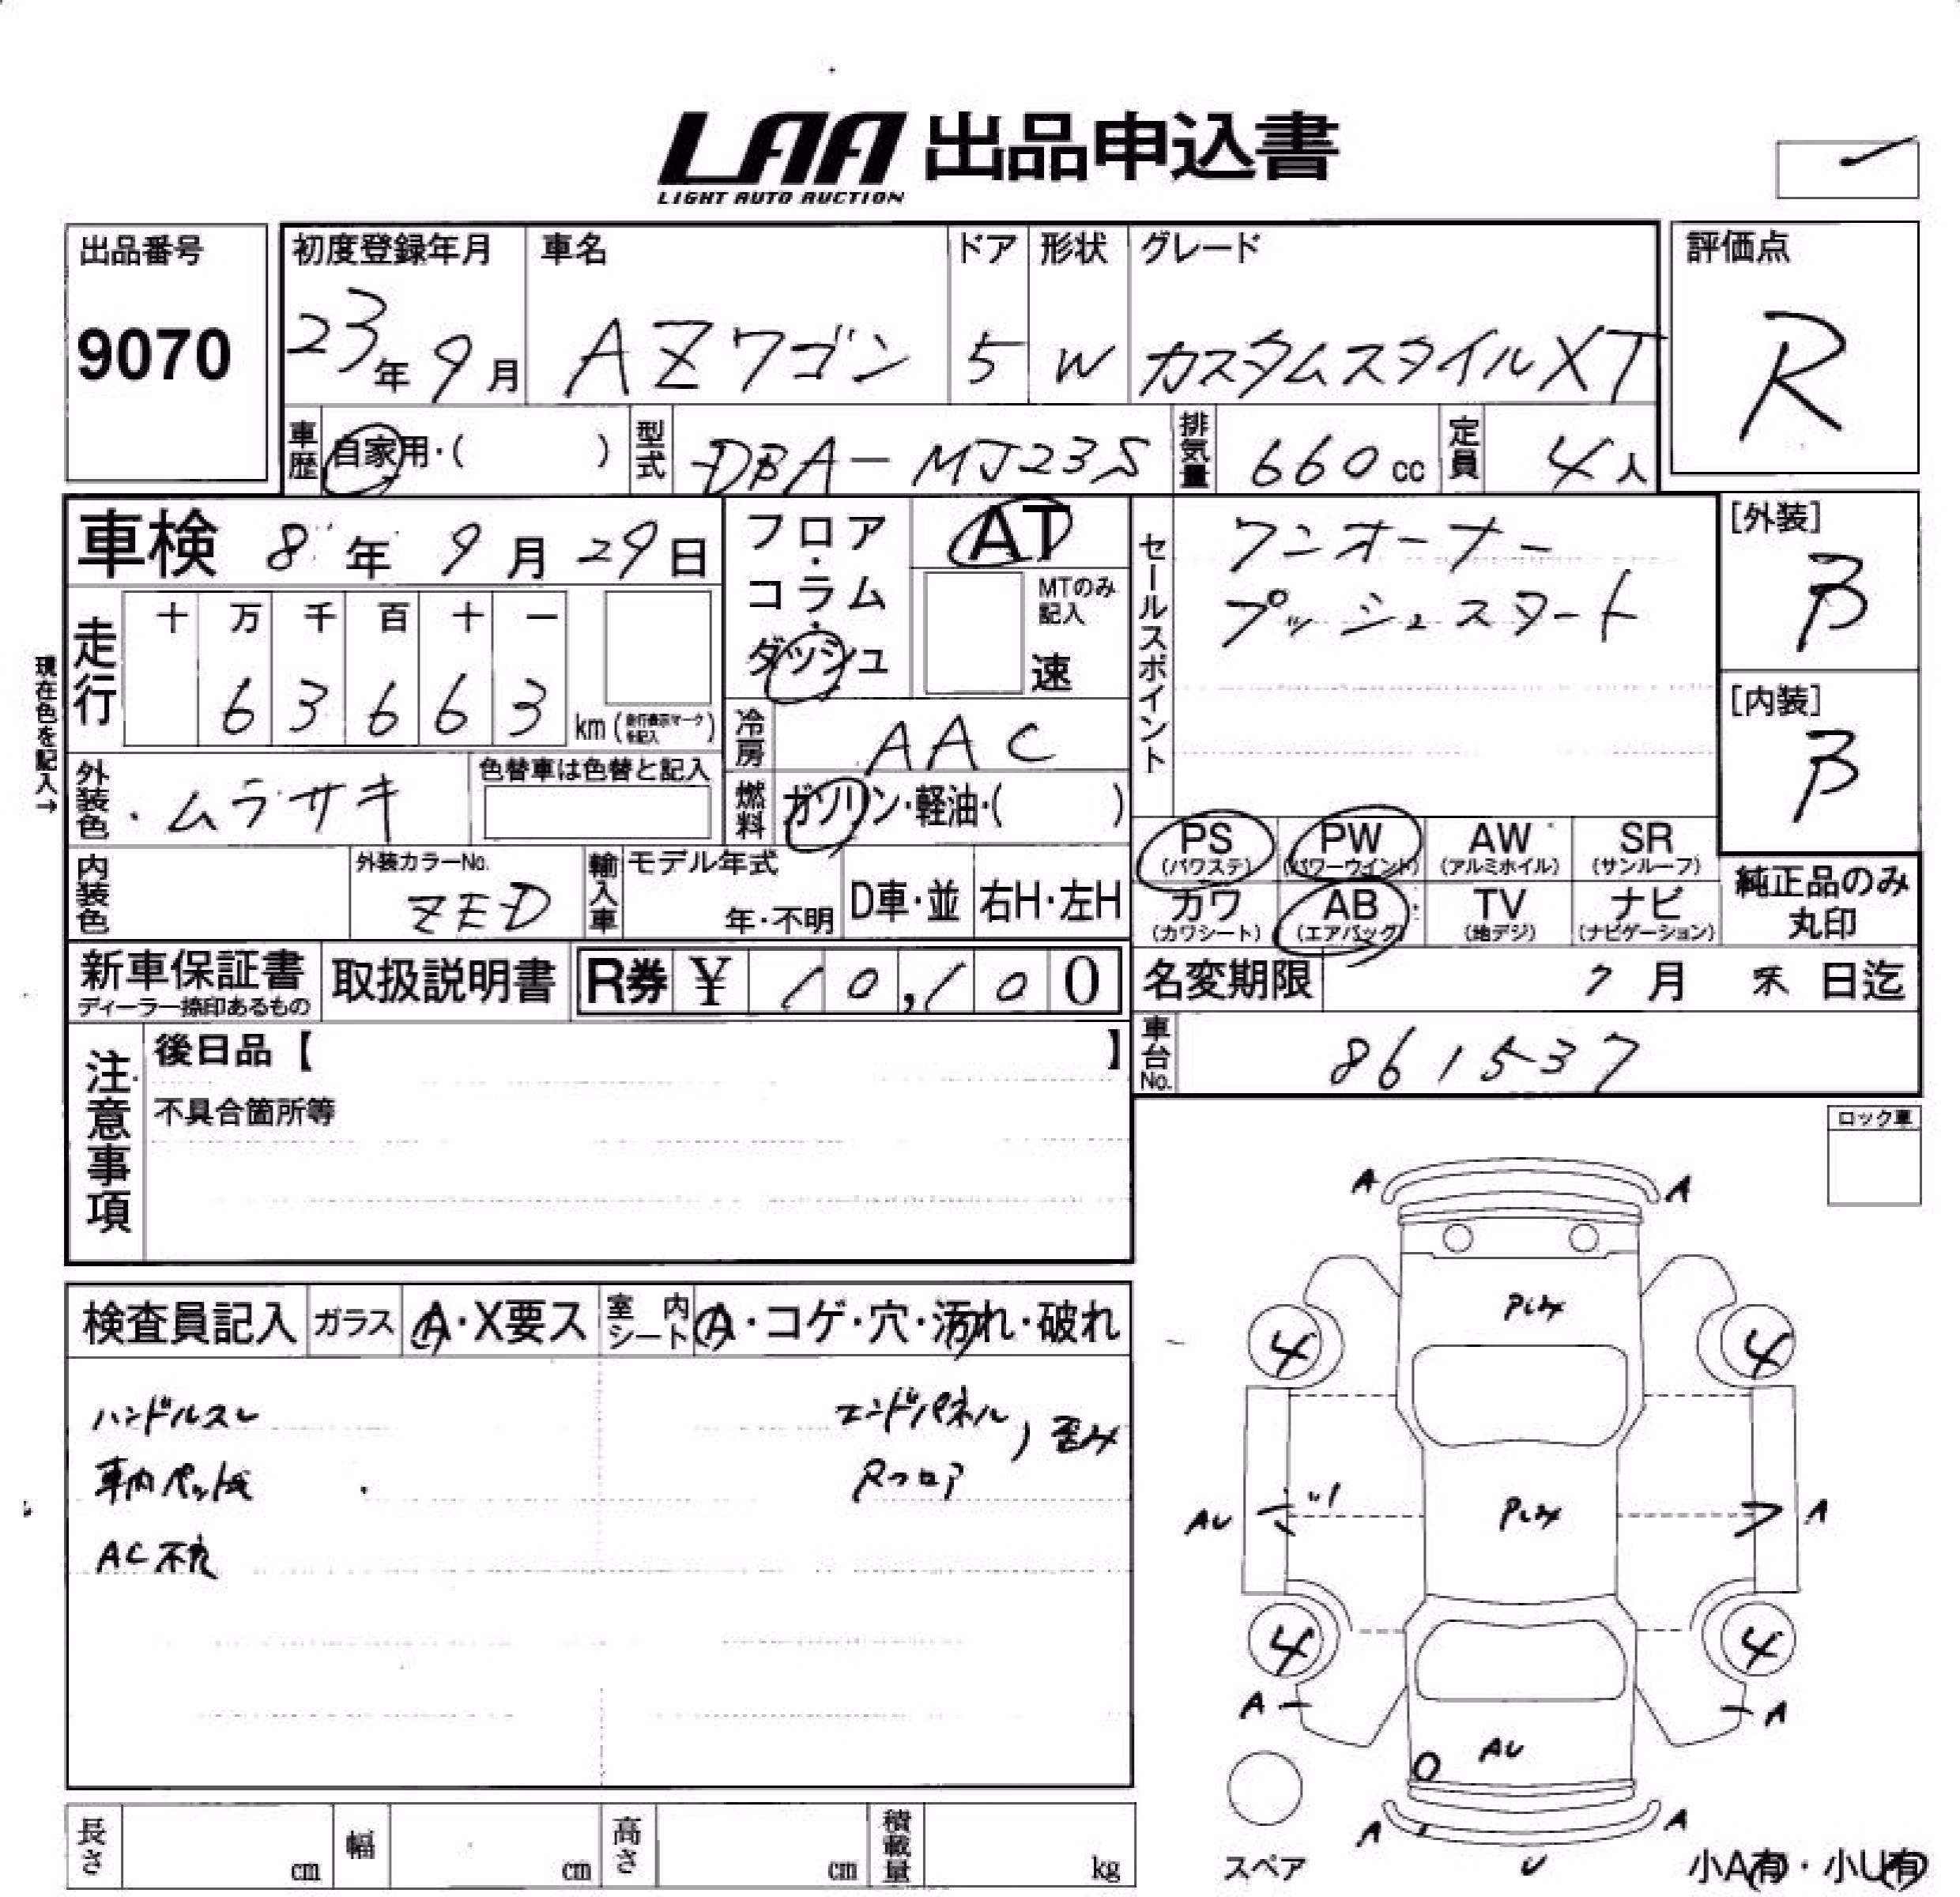 LAA 出品申込書
LIGHT AUTO AUCTION
出品番号
9070
初度登録年月
23年 9月
車名
AZワゴン
ドア
5
形状
W
グレード
カスタムスタイルXT
評価点
R
車歴 自家用・( )
型式 DBA-MJ23S
排気量 660 cc
定員 4人
車検 8年 9月 29日
フロア・コラム・ダッシュ
AT
MTのみ記入
速
セールスポイント
ワンオーナー
プッシュスタート
[外装]
B
[内装]
B
現在色を記入→
走行
十 万 千 百 十 一
6 3 6 6 3 km (走行表示マークを記入)
冷房 AAC
外装色 ・ムラサキ
色替車は色替と記入
燃料 ガソリン・軽油・( )
PS (パワステ)
PW (パワーウインド)
AW (アルミホイル)
SR (サンルーフ)
カワ (カワシート)
AB (エアバッグ)
TV (地デジ)
ナビ (ナビゲーション)
純正品のみ丸印
内装色
外装カラーNo.
ZED
輸入車
モデル年式
年・不明
D車・並
右H・左H
新車保証書
ディーラー捺印あるもの
取扱説明書
R券 ¥ 10,100
名変期限 7月 末日迄
車台No. 861537
注意事項
後日品【 】
不具合箇所等
ロック車
検査員記入
ガラス A・X要ス
室内シート A・コゲ・穴・汚れ・破れ
ハンドルスレ
車内ペット毛
AC不良
エンドパネル
Rフロア
歪み
A A
4 4
AU A
4 4
A A
AU
A A
U
スペア
小A有・小U有
長さ cm
幅 cm
高さ cm
積載量 kg